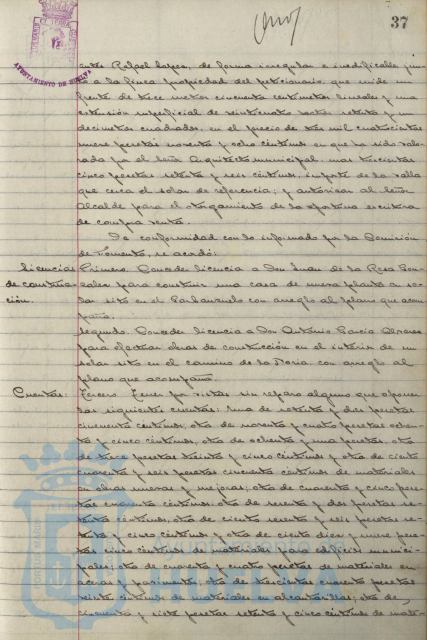 37
AYUNTAMIENTO DE HUELVA
entes Rafael López, de forma irregular e inedificable jun-
to a la finca propiedad del peticionario, que mide un
frente de trece metros cincuenta centímetros lineales y una
extensión superficial de veinticuatro metros setenta y un
decímetros cuadrados, en el precio de tres mil cuatrocientas
nueve pesetas noventa y ocho céntimos en que ha sido valo-
rada por el señor Arquitecto municipal, mas trescientas
cinco pesetas setenta y seis céntimos, importe de la valla
que cerca el solar de referencia; y autorizar al señor
Alcalde para el otorgamiento de la oportuna escritura
de compra venta.
De conformidad con lo informado por la Comisión
de Fomento, se acordó:
Licencias de construc-
ción.
Primero. Conceder licencia a Don Juan de la Rosa Gon-
zalez para construir una casa de nueva planta en so-
lar sito en el Garbanzuelo con arreglo al plano que acom-
paña.
Segundo. Conceder licencia a Don Antonio García Alvarez
para efectuar obras de construcción en el interior de un
solar sito en el camino de la Noria con arreglo al
plano que acompaña.
Cuentas:
Tercero. Tener por vistas sin reparo alguno que oponer
las siguientes cuentas: Una de setenta y dos pesetas
cincuenta céntimos, otra de noventa y cuatro pesetas ochen-
ta y cinco céntimos, otra de ochenta y una pesetas, otra
de trece pesetas treinta y cinco céntimos y otra de ciento
cuarenta y seis pesetas cincuenta céntimos de materiales
en obras nuevas y mejoras; otra de cuarenta y cinco pese-
tas cuarenta céntimos, otra de noventa y dos pesetas se-
tenta céntimos, otra de ciento noventa y seis pesetas se-
tenta y cinco céntimos y otra de ciento diez y nueve pese-
tas cinco céntimos de materiales para edificios munici-
pales; otra de cuarenta y cuatro pesetas de materiales en
aceras y pavimento; otra de trescientas cuarenta pesetas
veinte céntimos de materiales en alcantarillas; otra de
cincuenta y siete pesetas setenta y cinco céntimos de mate-